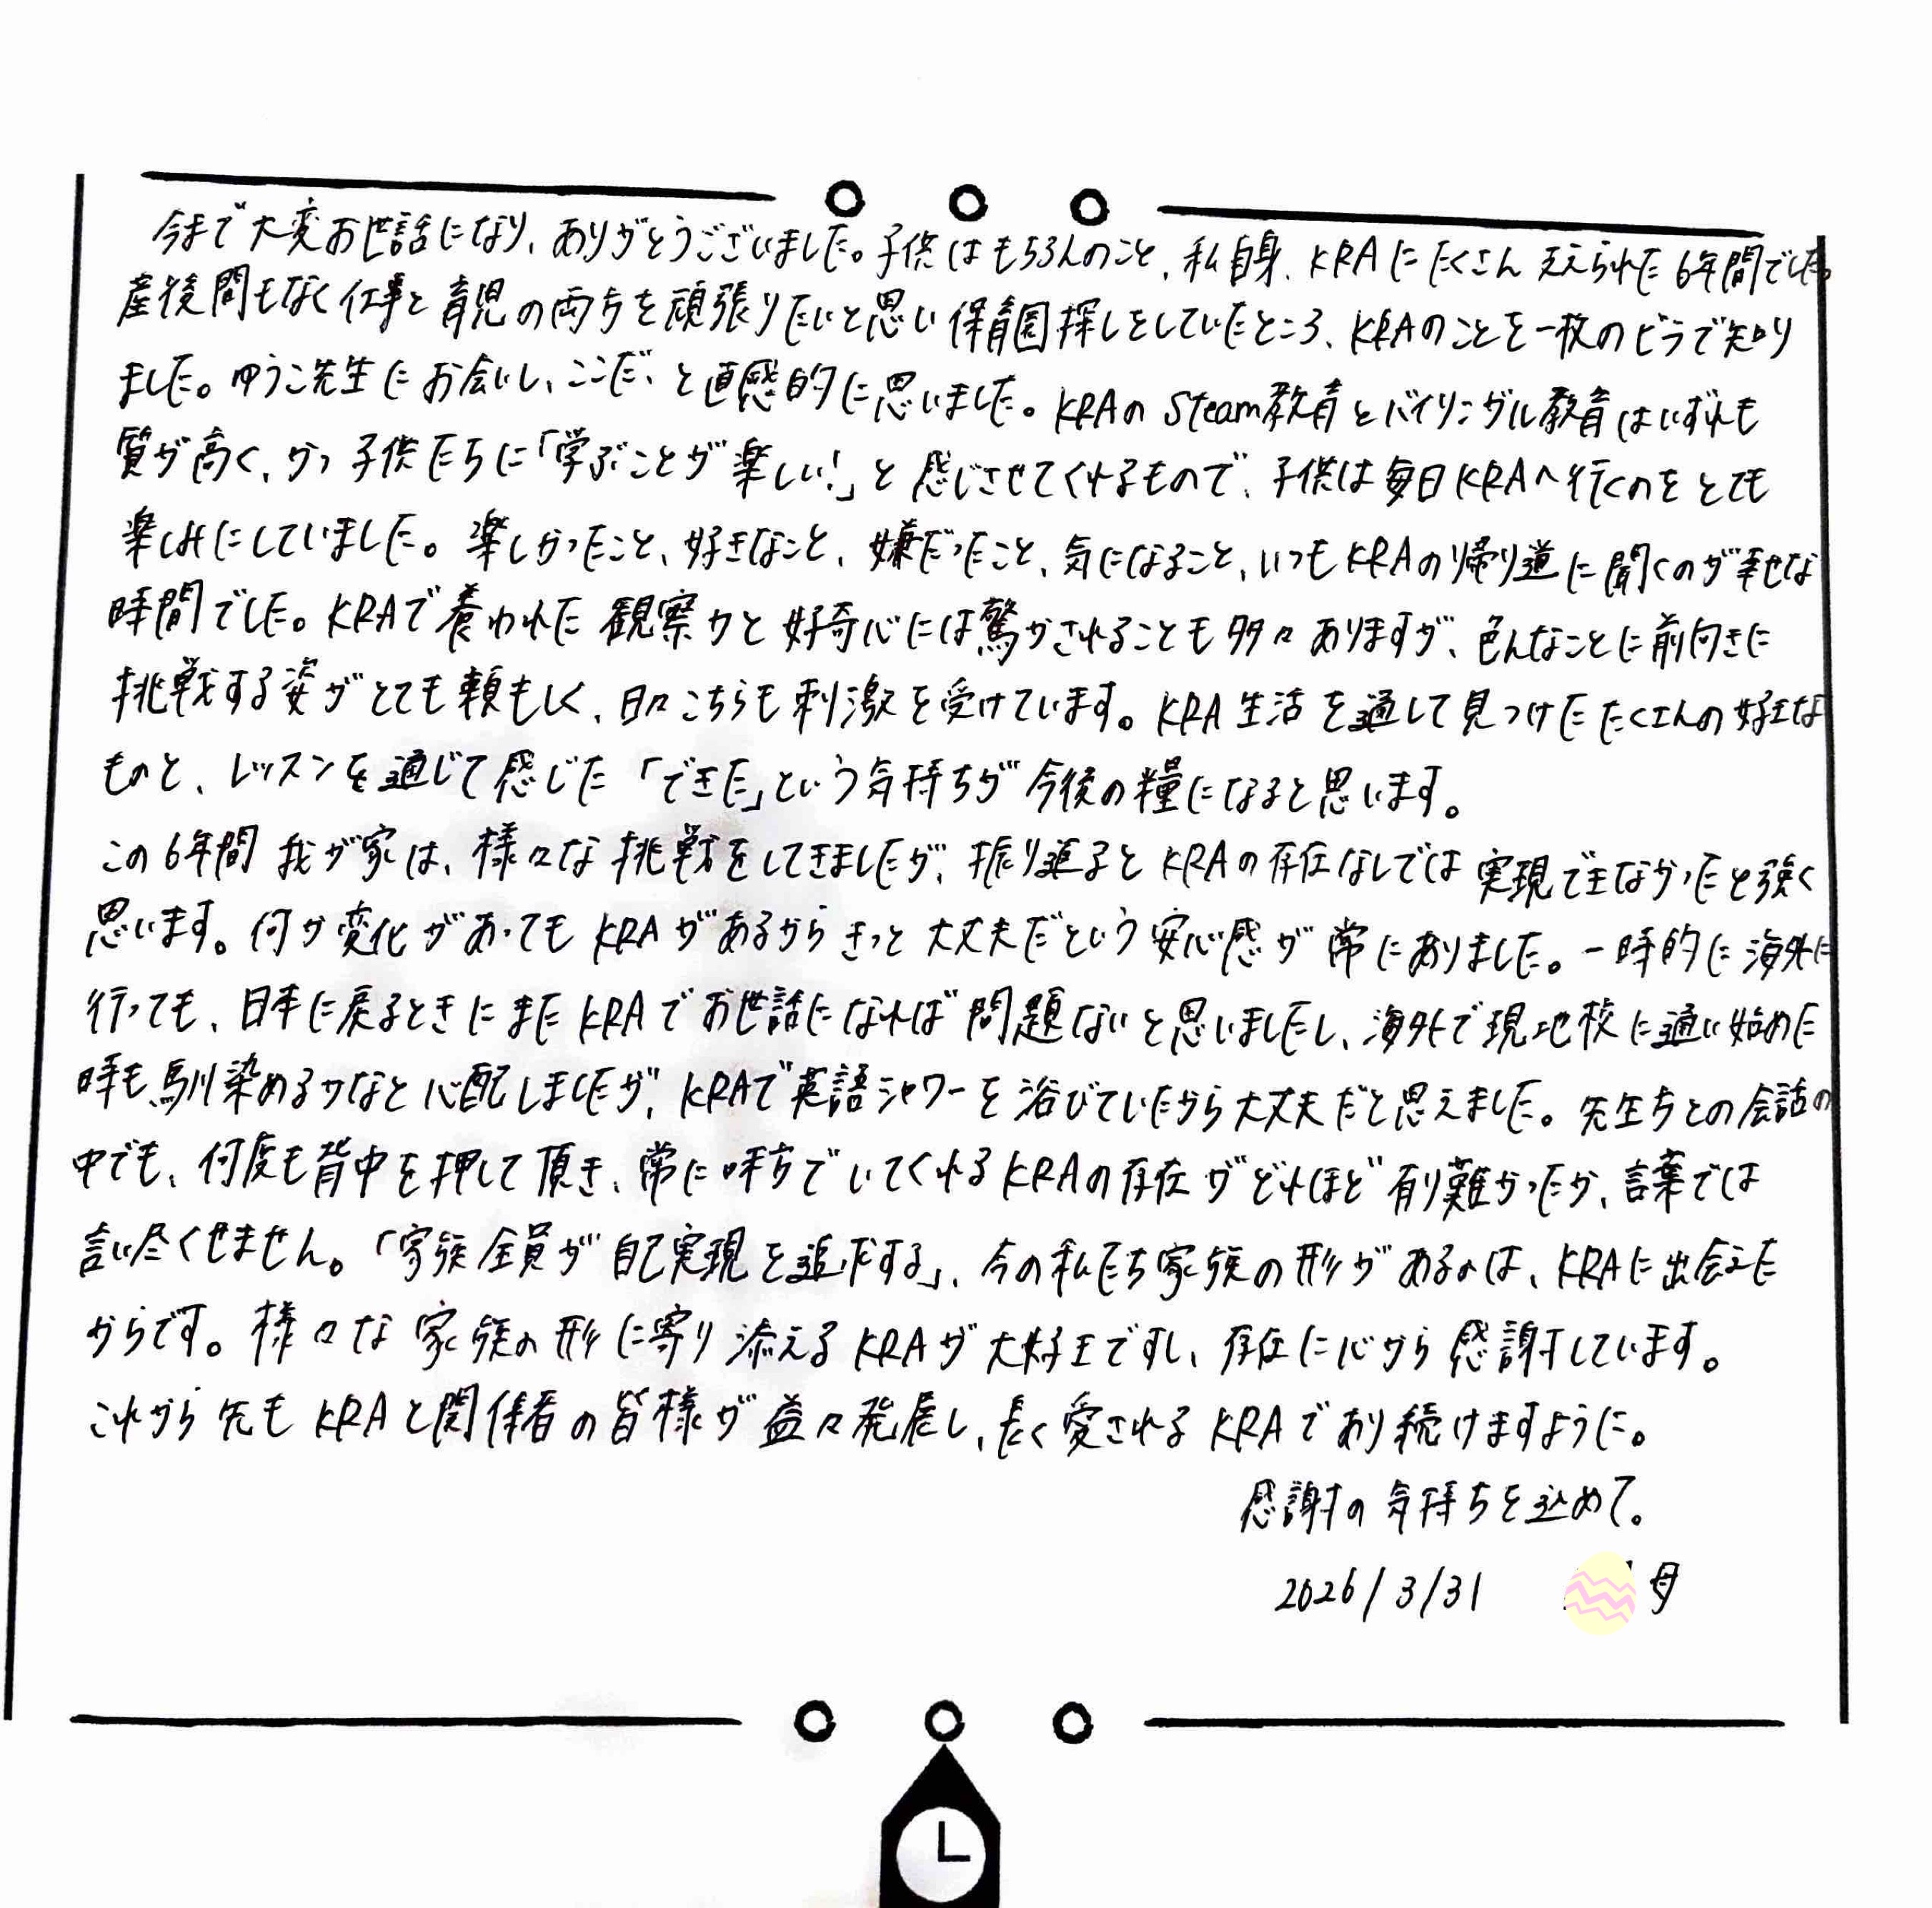 今まで大変お世話になり、ありがとうございました。子供はもちろんのこと、私自身、KRAにたくさん支えられた6年間でした。
産後間もなく仕事と育児の両方を頑張りたいと思い保育園探しをしていたところ、KRAのことを一枚のビラで知り
ました。ゆうこ先生にお会いし、ここだ、と直感的に思いました。KRAのSteam教育とバイリンガル教育はいずれも
質が高く、かつ子供たちに「学ぶことが楽しい!」と感じさせてくれるもので、子供は毎日KRAへ行くのをとても
楽しみにしていました。楽しかったこと、好きなこと、嫌だったこと、気になること、いつもKRAの帰り道に聞くのが幸せな
時間でした。KRAで養われた観察力と好奇心には驚かされることも多々ありますが、色んなことに前向きに
挑戦する姿がとても頼もしく、日々こちらも刺激を受けています。KRA生活を通して見つけたたくさんの好きな
ものと、レッスンを通じて感じた「できた」という気持ちが今後の糧になると思います。
この6年間我が家は、様々な挑戦をしてきましたが、振り返るとKRAの存在なしでは実現できなかったと強く
思います。何か変化があってもKRAがあるからきっと大丈夫だという安心感が常にありました。一時的に海外に
行っても、日本に戻るときにまたKRAでお世話になれば問題ないと思いましたし、海外で現地校に通い始めた
時も馴染めるかなと心配しましたが、KRAで英語シャワーを浴びていたから大丈夫だと思えました。先生方との会話の
中でも、何度も背中を押して頂き、常に味方でいてくれるKRAの存在がどれほど有り難かったか、言葉では
言い尽くせません。「家族全員が自己実現を追求する」、今の私たち家族の形があるのは、KRAに出会えた
からです。様々な家族の形に寄り添えるKRAが大好きですし、存在に心から感謝しています。
これから先もKRAと関係者の皆様が益々発展し、長く愛されるKRAであり続けますように。
感謝の気持ちを込めて。
2026/3/31 母